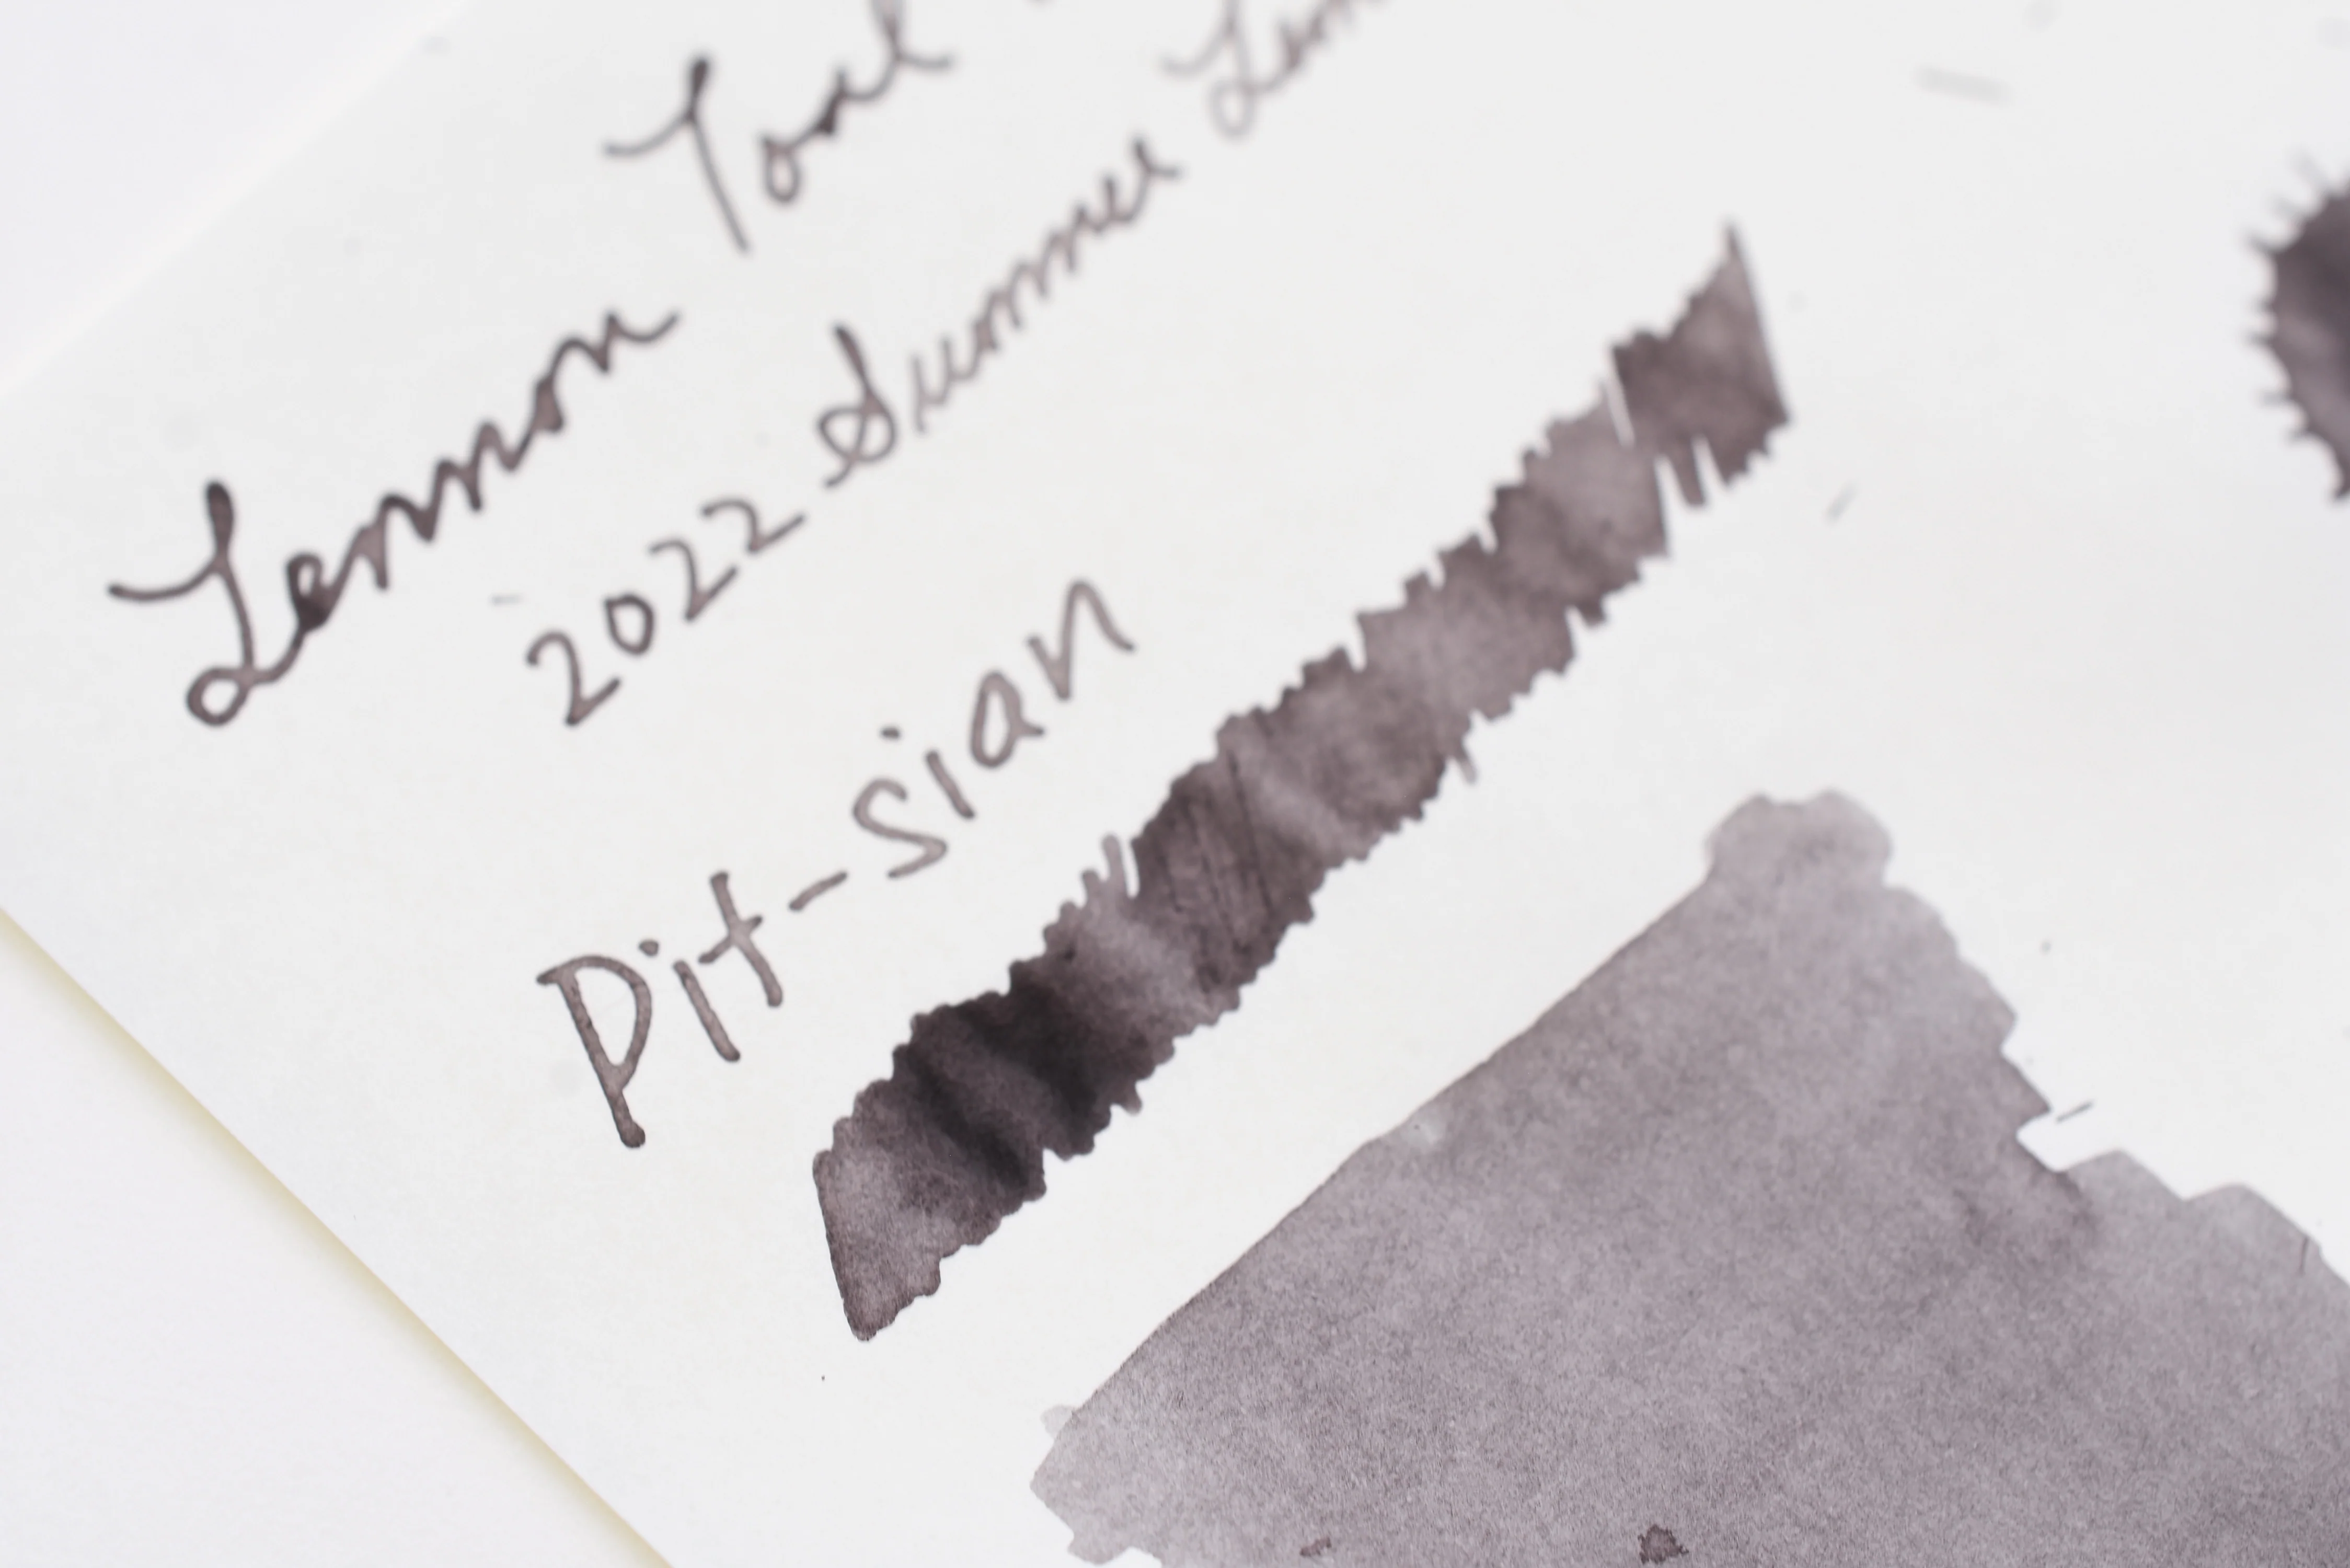 Lennon Tool
2022 Summer
Pit-sian